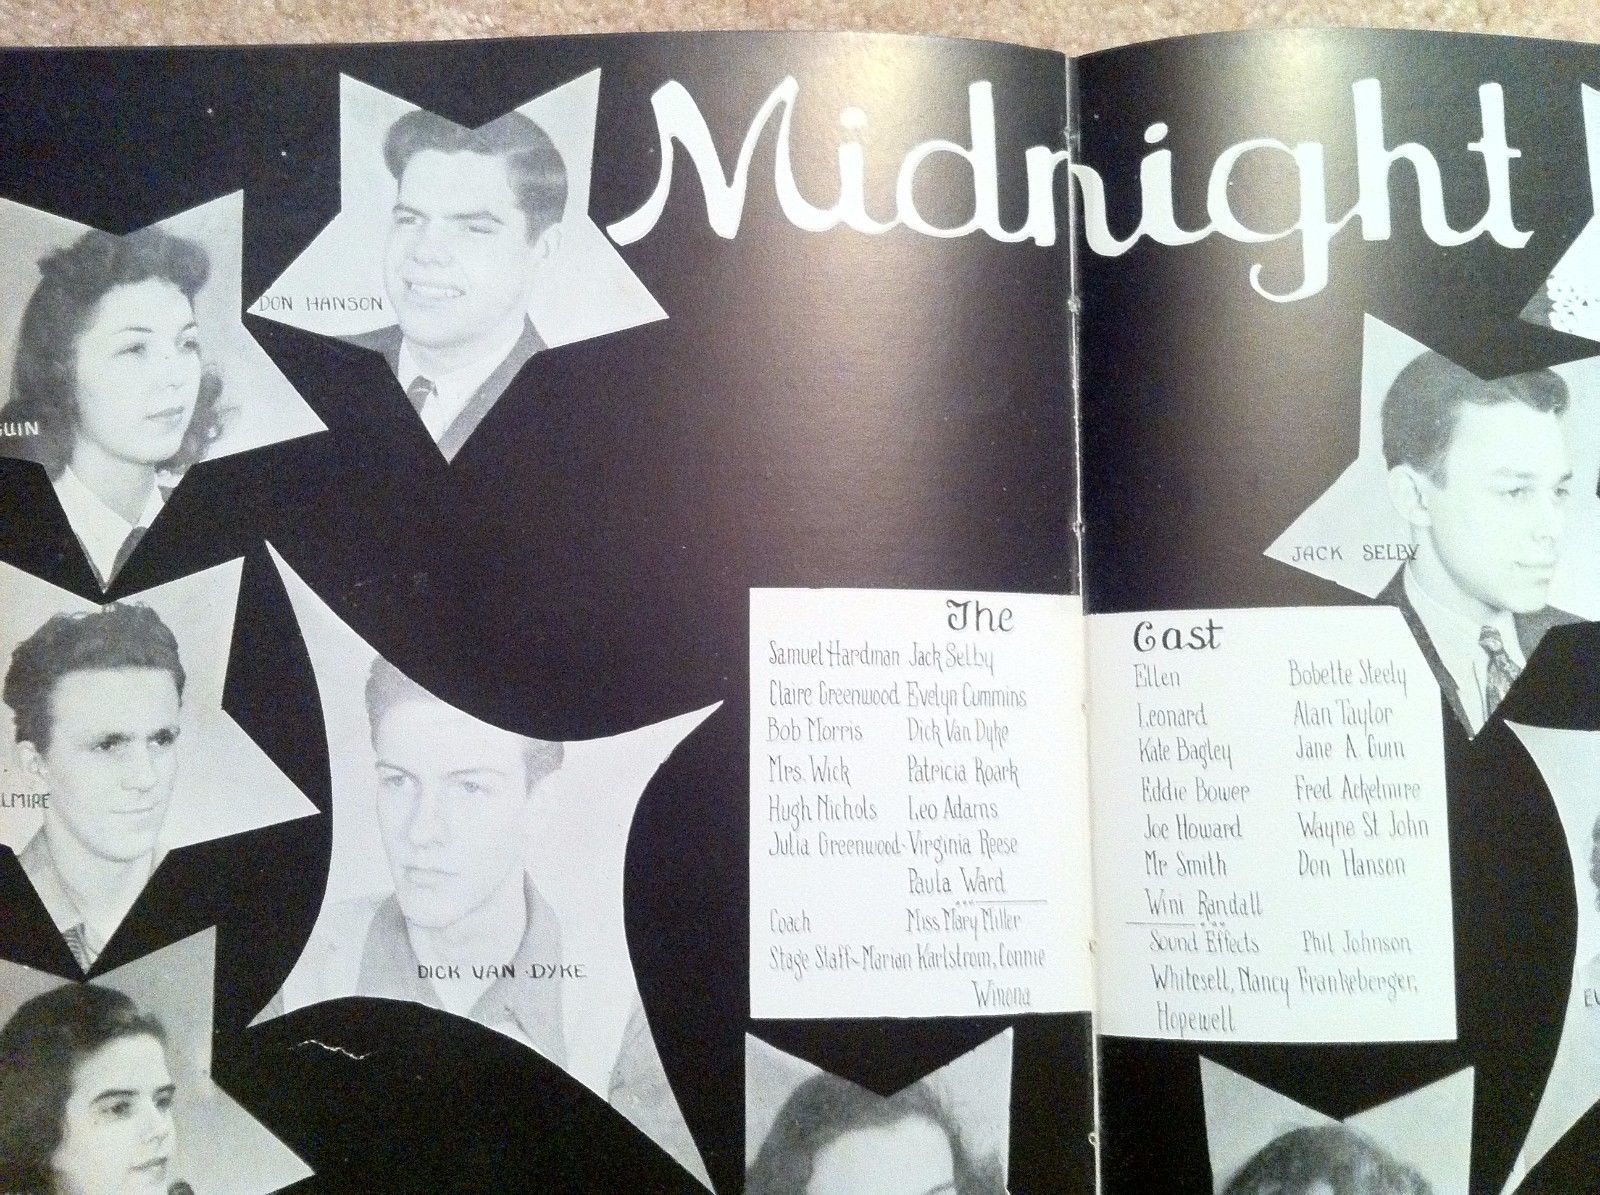 Midnight
DON HANSON
GUIN
JACK SELBY
LMIRE
DICK VAN DYKE
The Cast
Samuel Hardman Jack Selby
Claire Greenwood Evelyn Cummins
Bob Morris Dick Van Dyke
Mrs. Wick Patricia Roark
Hugh Nichols Leo Adams
Julia Greenwood-Virginia Reese
Paula Ward
Coach Miss Mary Miller
Stage Staff~Marian Karlstrom, Connie
Winona
Ellen Bobette Steely
Leonard Alan Taylor
Kate Bagley Jane A. Guin
Eddie Bower Fred Ackelmire
Joe Howard Wayne St John
Mr Smith Don Hanson
Wini Randall
Sound Effects Phil Johnson
Whitesell, Nancy Frankeberger,
Hopewell